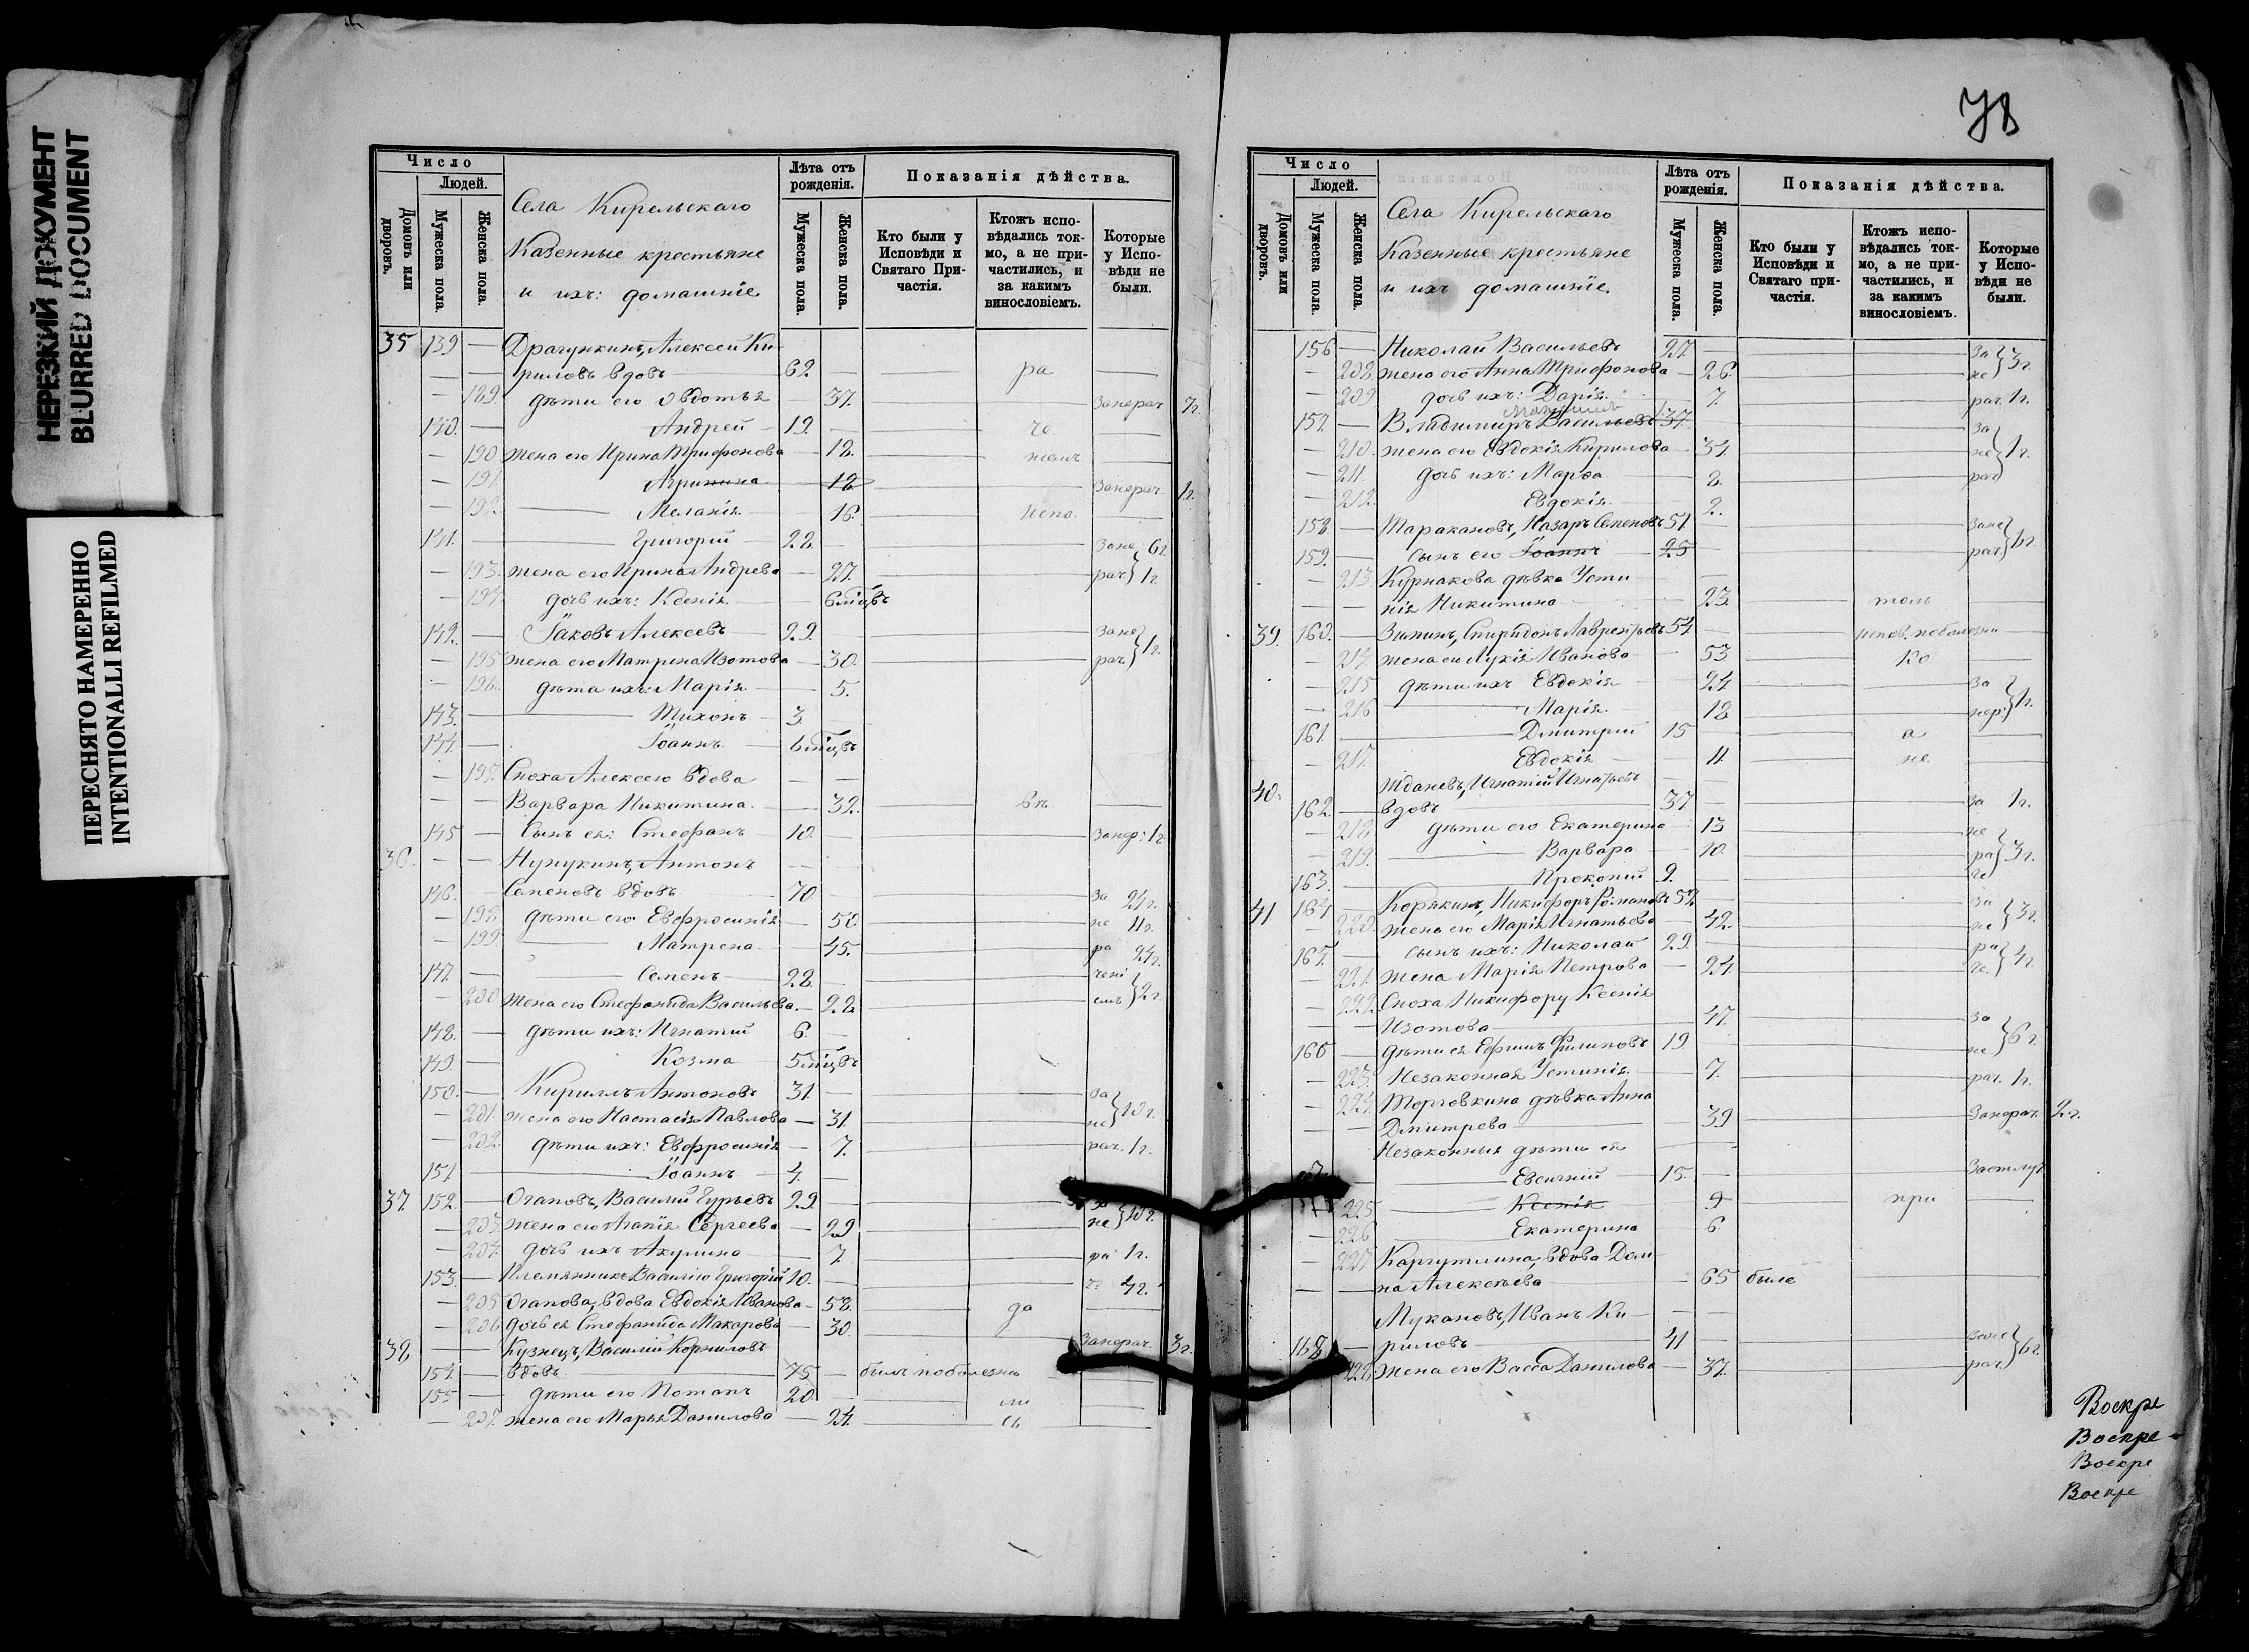 НЕРЕЗКИЙ ДОКУМЕНТ
BLURRED DOCUMENT
ПЕРЕСНЯТО НАМЕРЕННО
INTENTIONALLI REFILMED
Число
Людей.
Домовъ или дворовъ.
Мужеска пола.
Женска пола.
Села Кирельскаго
Казенные крестьяне
и ихъ: домашніе
Лѣта отъ рожденія.
Мужеска пола.
Женска пола.
Показанія дѣйства.
Кто были у Исповѣди и Святаго Причастія.
Ктожъ исповѣдались токмо, а не причастились, и за какимъ винословіемъ.
Которые у Исповѣди не были.
35 139 — Драгункинъ, Алексей Ки-
— — риловъ вдовъ 62 — ра —
— 189 дѣти его Овдотья — 37. Занерач 7г.
140. — Андрей 19. —
— 190 жена его Ирина Трифонова — 18.
— 191. — 18 Занерач 1г.
— 192. Меланія 16. Испо.
141. — Григорій 28. — Зане 6г.
— 193. жена его Ирина Андрева — 27. рач 1г.
— 194. дочь ихъ: Ксенія 6 мѣцвъ
142. — Іаковъ Алексевъ 29. Зане
— 195 жена его Матрена Изотова — 30. рач. 1г.
— 196. дѣти ихъ: Марія — 5.
143. — Тихонъ 3.
144. — Іоаннъ 6 мѣцвъ
— 197. Сноха Алексею вдова — —
— — Варвара Никитина. — 32. вѣ —
145 — Сынъ ея: Стефанъ 10. Занер: 1г.
36. — — Нупукинъ, Антонъ — —
146. — Семеновъ вдовъ 70. За 24г.
— 198. дѣти его Евфросинія — 50. не 11г.
— 199 Матрена 45. ра 24г.
147. — Семенъ 28. чені
— 200 жена его Стефанида Васильева. — 28 емъ 2г.
148. — дѣти ихъ: Игнатій 6. —
149. — Козма 5 мѣцвъ
150. — Кириллъ Антоновъ 31. — За
— 201. жена его Настасія Павлова — 31. не 10г.
— 202. дѣти ихъ: Евфросинія — 7. рач. 1г.
151 Іоаннъ 4.
37. 152. — Огаповъ, Василій Гурьевъ 29. За
— 203 жена его Агапія Сергеева — 29 не 10г.
— 204. дочь ихъ Акулина — 7. ра 1г.
153. — Племянникъ Василію Григорій 10. — 4г.
— 205 Огапова, вдова Евдокія Иванова — 58. да —
— 206 дочь ея Стефанида Макарова — 30. Занерач. 3г.
38. — Кузнецъ, Василій Корниловъ
154. — вдовъ 75 — былъ по болезни
155 — дѣти его Потапъ 20. ли
— 207. жена его Марья Данилова — 24. сь
78
Число
Людей.
Домовъ или дворовъ.
Мужеска пола.
Женска пола.
Села Кирельскаго
Казенные крестьяне
и ихъ домашніе.
Лѣта отъ рожденія.
Мужеска пола.
Женска пола.
Показанія дѣйства.
Кто были у Исповѣди и Святаго причастія.
Ктожъ исповѣдались токмо, а не причастились, и за какимъ винословіемъ.
Которые у Исповѣди не были.
156 — Николай Васильевъ 27. — За
— 208. жена его Анна Трифонова — 26. не 3г.
— 209 дочь ихъ: Дарія. 7. рач. 1г.
157. — Владимиръ Васильевъ 37. За
— 210. жена его Евдокія Кирилова — 34. не 1г.
— 211. дочь ихъ: Марѳа 8. рач
— 212. Евдокія 2.
158. — Таракановъ, Назаръ Семеновъ 51 Зане
159. — сынъ его Іоаннъ 25 рач 6г.
— 213. Курнакова дѣвка Усти-
— — нія Никитина 23. толь —
39. 160. — Зининъ, Спиридонъ Лаврентьевъ 54 испов. по болезни
— 214. жена его Лукія Иванова — 53 ко —
— 215 дѣти ихъ Евдокія 24 За
— 216 Марія. 18 нер: 1г.
161. Дмитрій 15 а
— 217. Евдокія 11. не
40. Ждановъ, Игнатій Игнатьевъ
162. — вдовъ 37 — за 1г.
— 218. дѣти его Екатерина — 13 не
— 219. Варвара 10. ра 3г.
163. Прокопій 9. че
41 164 — Корякинъ, Никифоръ Романовъ 52 За
— 220. жена его Марія Игнатьева 42. не 3г.
165. сынъ ихъ: Николай 29 ра
— 221. жена Марія Петрова — 24. че. 4г.
— 222. Сноха Никифору Ксенія
— — Изотова 47. За
166 — дѣти ея Ефимъ Филиповъ 19 не 6г.
— 223. Незаконная Устинія 7. рач. 1г.
— 224 Торговкина дѣвка Анна
— — Дмитрева 39 Занерач. 2г.
Незаконныя дѣти ея
Евсигній 15. —
— 225 Ксенія 9 при —
— 226 Екатерина 6
— 227 Каргутлина, вдова Дом-
— — на Алексѣева 65 была
Мукановъ, Иванъ Ки-
168 — риловъ 41 Зане
228. жена его Васса Данилова — 37. рач 6г.
Воскре
Воскре-
Воскре
Воскре